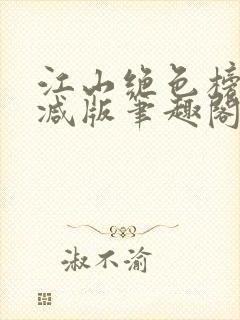 江山绝色榜
减版笔趣阁
淑不渝